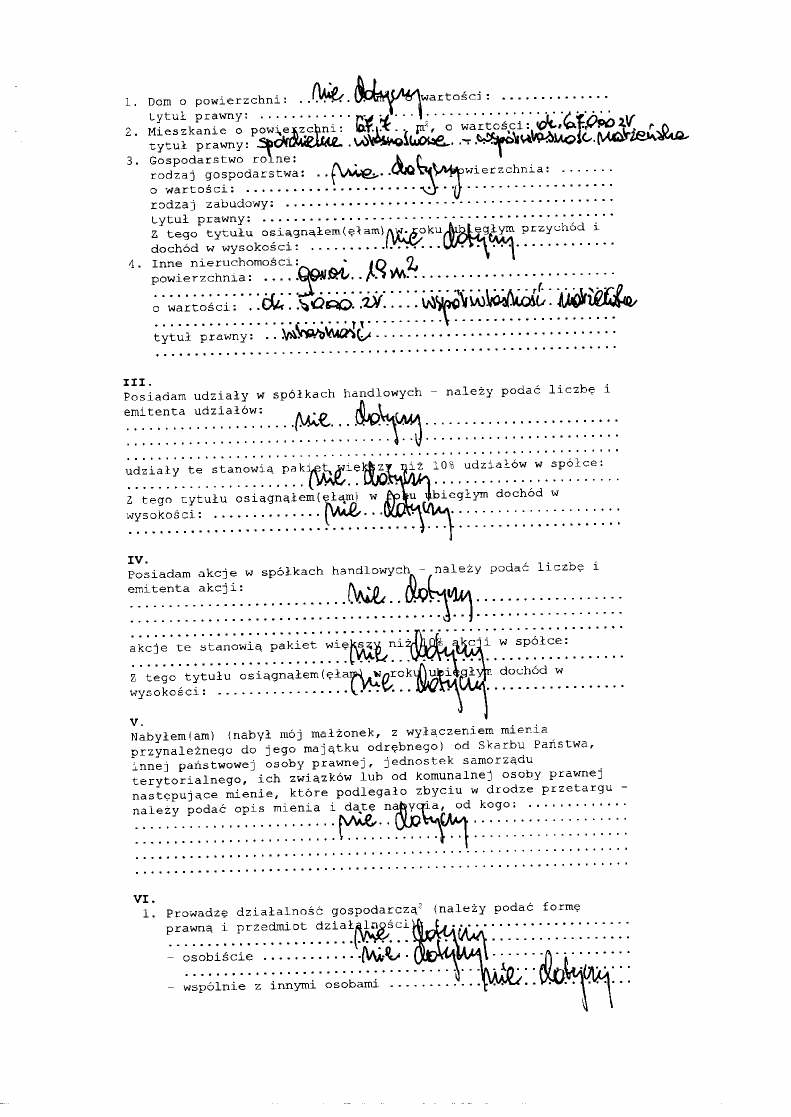 1. Dom o powierzchni: ...nie dotyczy wartości: ..............
tytuł prawny: ..............................................
2. Mieszkanie o powierzchni: 67,7 m², o wartości: ok. 67.000 zł
tytuł prawny: spółdzielcze własnościowe - współwłasność małżeńska
3. Gospodarstwo rolne:
rodzaj gospodarstwa: ..nie dotyczy powierzchnia: .......
o wartości: ................................................
rodzaj zabudowy: ...........................................
tytuł prawny: ..............................................
Z tego tytułu osiągnąłem(ęłam) w roku ubiegłym przychód i
dochód w wysokości: ..........nie dotyczy.............
4. Inne nieruchomości:
powierzchnia: ....garaż 19 m²..........................
............................................................
o wartości: ..ok. 5000 zł..... współwłasność małżeńska
............................................................
tytuł prawny: ..własność................................
............................................................
III.
Posiadam udziały w spółkach handlowych - należy podać liczbę i
emitenta udziałów:
......................nie...dotyczy.........................
............................................................
............................................................
udziały te stanowią pakiet większy niż 10% udziałów w spółce:
........................nie..dotyczy.........................
Z tego tytułu osiągnąłem(ęłam) w roku ubiegłym dochód w
wysokości: ..............nie...dotyczy......................
............................................................
IV.
Posiadam akcje w spółkach handlowych - należy podać liczbę i
emitenta akcji:
............................nie..dotyczy...................
............................................................
............................................................
akcje te stanowią pakiet większy niż 10% akcji w spółce:
............................nie...dotyczy..................
Z tego tytułu osiągnąłem(ęłam) w roku ubiegłym dochód w
wysokości: .................nie...dotyczy..................
V.
Nabyłem(am) (nabył mój małżonek, z wyłączeniem mienia
przynależnego do jego majątku odrębnego) od Skarbu Państwa,
innej państwowej osoby prawnej, jednostek samorządu
terytorialnego, ich związków lub od komunalnej osoby prawnej
następujące mienie, które podlegało zbyciu w drodze przetargu -
należy podać opis mienia i datę nabycia, od kogo: .............
..........................nie..dotyczy....................
............................................................
............................................................
............................................................
VI.
1. Prowadzę działalność gospodarczą² (należy podać formę
prawną i przedmiot działalności)......................
........................nie...dotyczy...................
- osobiście ............nie..dotyczy..................
............................................................
- wspólnie z innymi osobami ............nie..dotyczy...